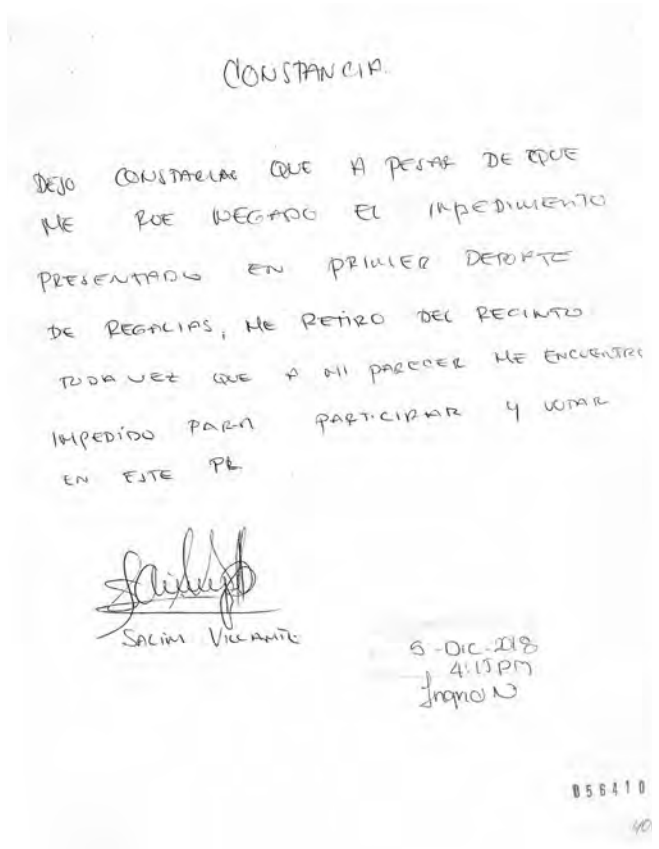 CONSTANCIA.
DEJO CONSTANCIA QUE A PESAR DE QUE
ME FUE NEGADO EL IMPEDIMENTO
PRESENTADO EN PRIMIER DEBATE
DE REGALIAS, ME RETIRO DEL RECINTO
TODA VEZ QUE A MI PARECER ME ENCUENTRO
IMPEDIDO PARA PARTICIPAR Y VOTAR
EN ESTE PL
SALIM VILLAMIL
5-DIC-2018
4:15 PM
Ingrid N
056410
40